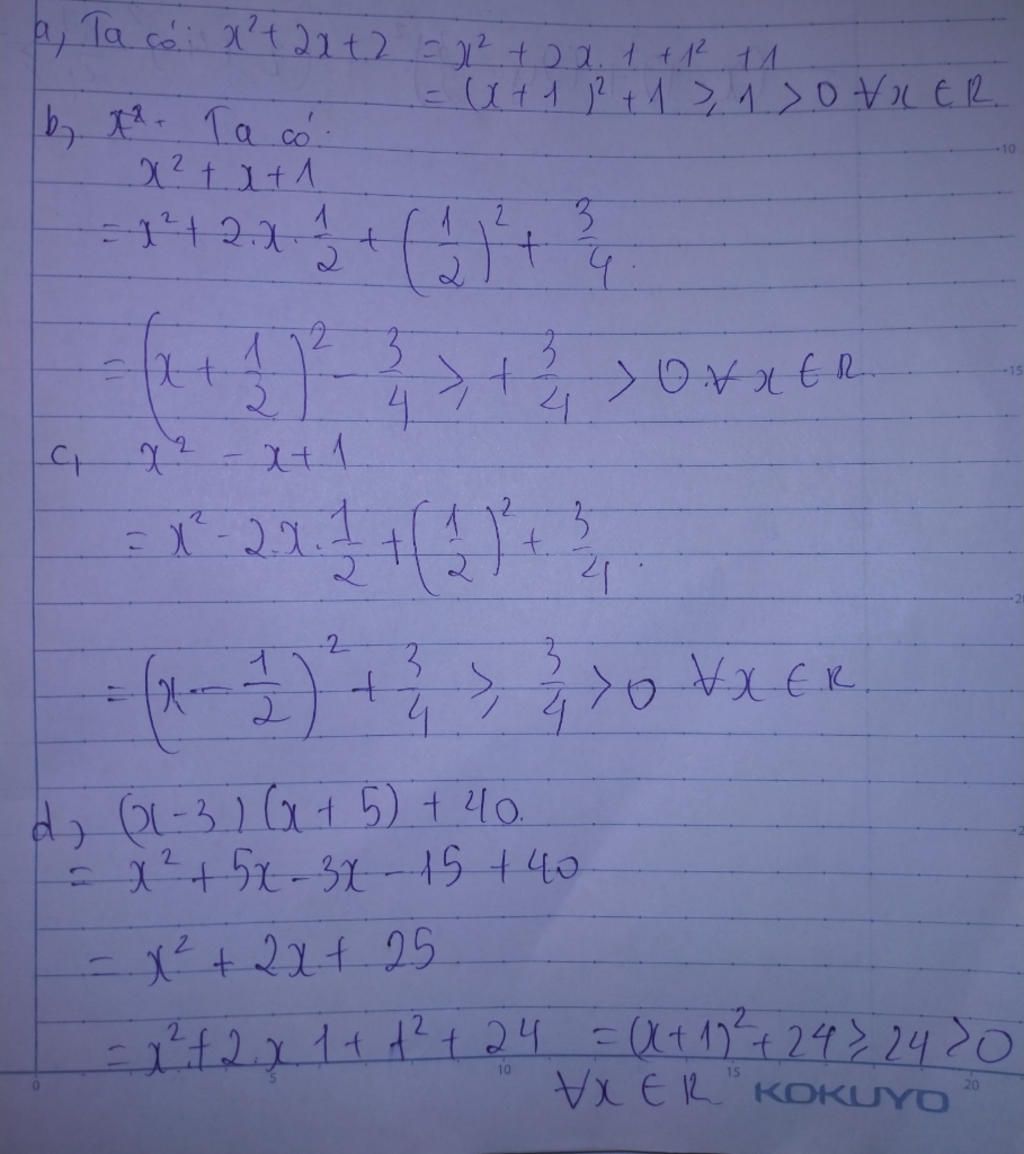 a, Ta có: x² + 2x + 2 = x² + 2x.1 + 1² + 1
= (x + 1)² + 1 ≥ 1 > 0 ∀x ∈ R
b, x². Ta có:
x² + x + 1
= x² + 2.x.1/2 + (1/2)² + 3/4.
= (x + 1/2)² - 3/4 ≥ + 3/4 > 0.∀x ∈ R.
c, x² - x + 1
= x² - 2.x.1/2 + (1/2)² + 3/4.
= (x - 1/2)² + 3/4 ≥ 3/4 > 0 ∀x ∈ R.
d, (x - 3)(x + 5) + 40.
= x² + 5x - 3x - 15 + 40
= x² + 2x + 25
= x² + 2.x 1 + 1² + 24 = (x + 1)² + 24 ≥ 24 > 0
∀x ∈ R
KOKUYO
0 5 10 15 20
10
15